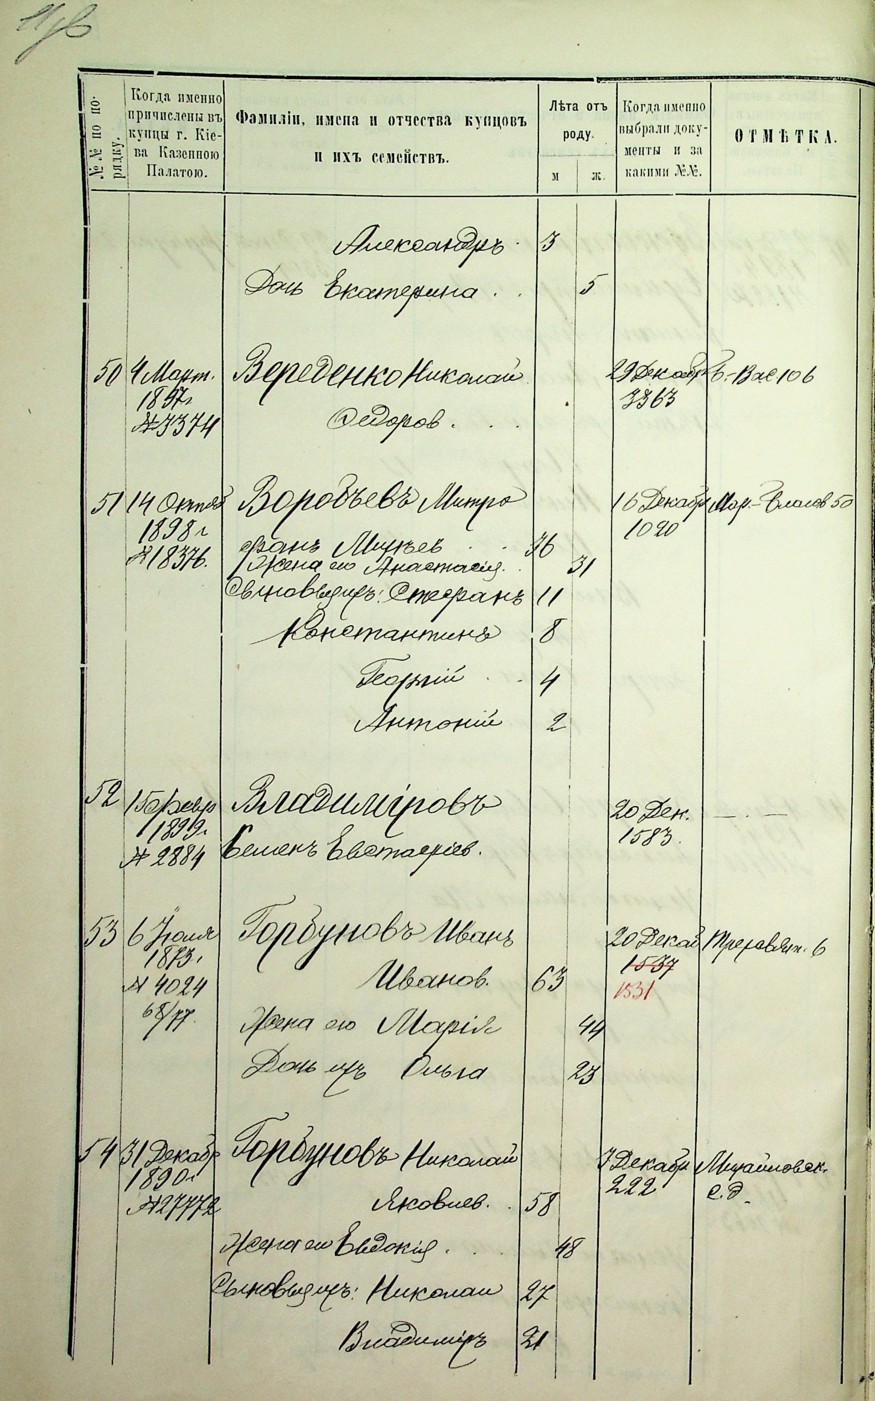 №№ по по-
рядку.
Когда именно
причислены въ
купцы г. Кіе-
ва Казенною
Палатою.
Фамиліи, имена и отчества купцовъ
и ихъ семействъ.
Лѣта отъ
роду.
м ж.
Когда именно
выбрали доку-
менты и за
какими №№.
ОТМѢТКА.
Александръ 3
Дочь Екатерина 5
50 4 Март. Вереденко Николай 29 Декабр Б.-Вас 106
1897 г 3363
№ 3374 Федоров.
51 14 Октяб Воробьевъ Митро 16 Декабр Мар.-Благов 50
1898 г 1020
№ 18376. фанъ 36
Жена его Анастасія 31
Сыновья ихъ: Стефанъ 11
Константинъ 8
Георгій 4
Антоній 2
52 15 Февр Владиміровъ 20 Дек. — . —
1899 г 1583
№ 2884 Семенъ Евстафіев.
53 6 Іюля Горбуновъ Иванъ 20 Декаб 6
1873 г 1537
№ 4024 Иванов. 63 1531
68/77.
Жена его Марія 44
Дочь ихъ Ольга 23
54 31 Декабр Горбуновъ Николай 7 Декабр Михайловск.
1890 г 222 с.д.
№ 27772 Яковлев. 58
Жена его Евдокія 48
Сыновья ихъ: Николай 27
Владиміръ 21